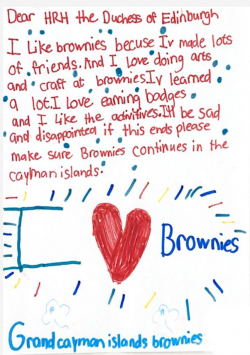 Dear HRH the Duchess of Edinburgh
I Like brownies becuse Iv made lots
of friends. And I love doing arts
and craft at brownies. Iv learned
a lot. I love earning badges
and I like the activities. Itll be sad
and disappointed if this ends please
make sure Brownies continues in the
cayman islands.
I ♥ Brownies
Grand cayman islands brownies